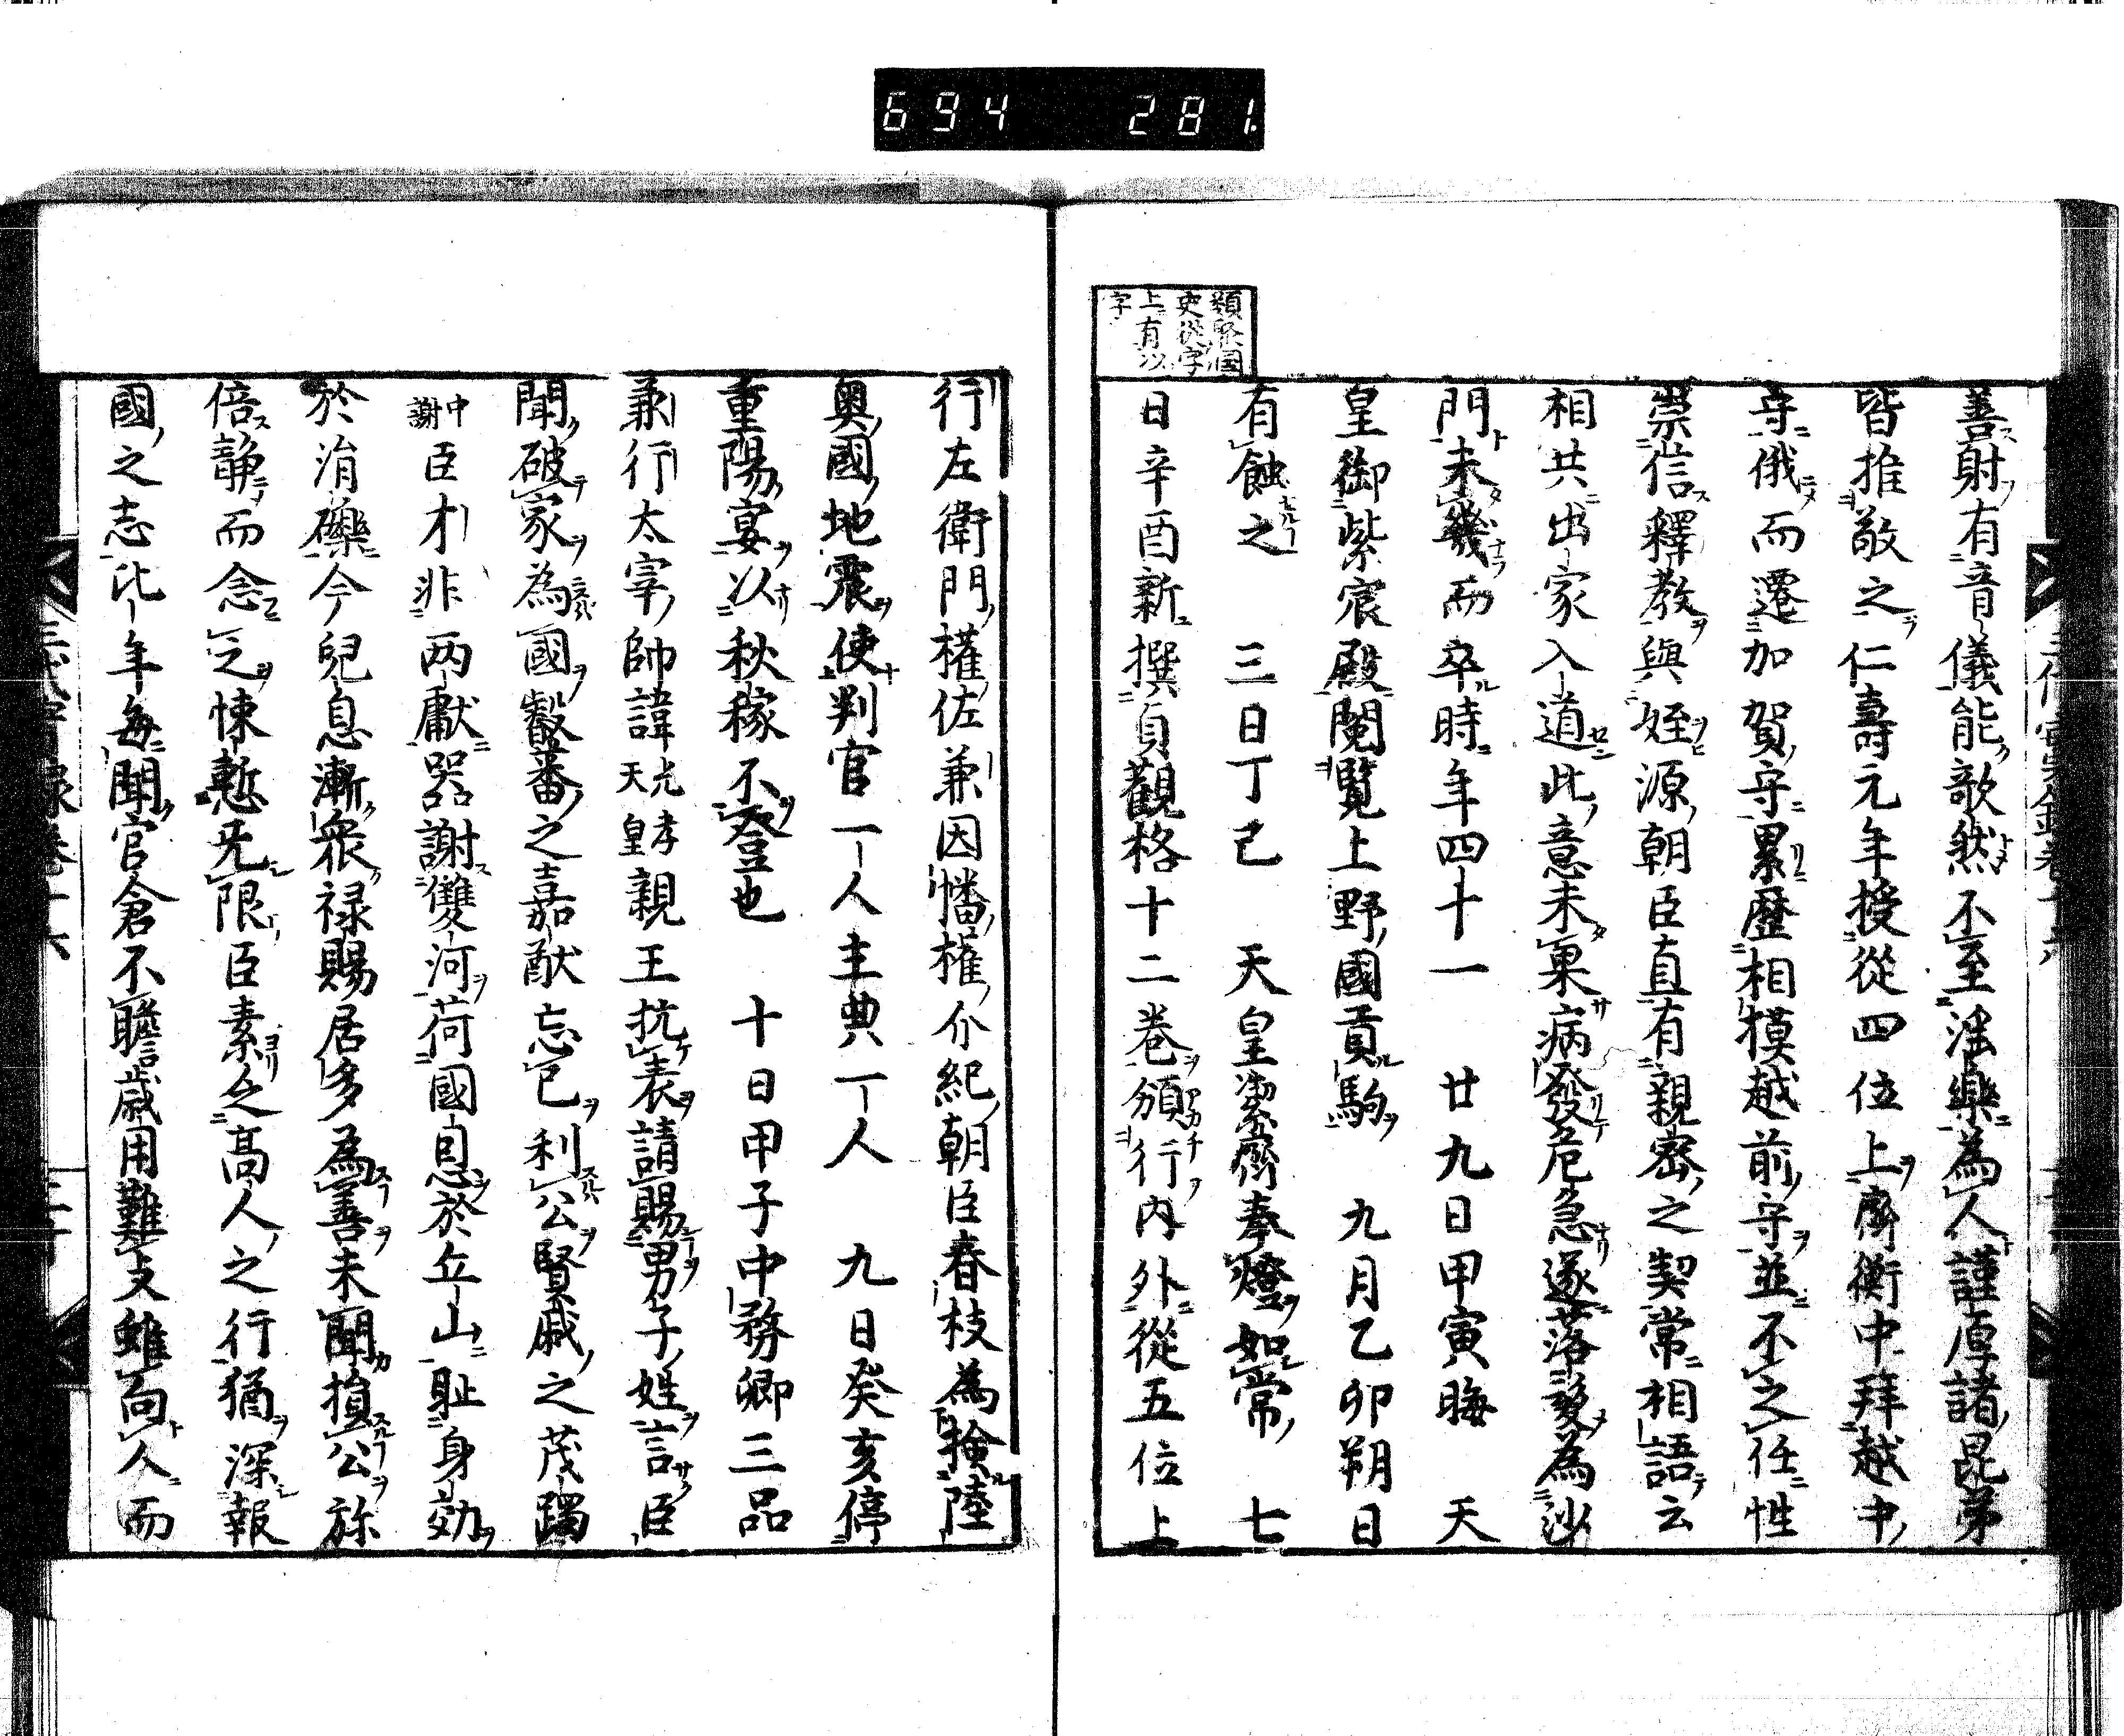 694 281.
類聚國
史從字
上有以
字
善射有音儀能歌然不至淫樂為人謹厚諸昆弟
皆推敬之仁壽元年授從四位上齊衡中拜越中
守俄而遷加賀守累歷相摸越前守並不之任性
崇信釋教與姪源朝臣直有親密之契常相語云
相共出家入道此意未果病發危急遂落髮為沙
門未幾而卒時年四十一 廿九日甲寅晦 天
皇御紫宸殿閱覽上野國貢駒 九月乙卯朔日
有蝕之 三日丁巳 天皇潔齋奉燈如常 七
日辛酉新撰貞觀格十二卷頒行內外從五位上
行左衛門權佐兼因幡權介紀朝臣春枝為檢陸
奧國地震使判官一人主典一人 九日癸亥停
重陽宴以秋稼不登也 十日甲子中務卿三品
兼行太宰帥諱光孝天皇親王抗表請賜男子姓言臣
聞破家為國毄蕃之嘉猷忘已利公賢戚之茂躅
中謝臣才非兩獻器謝雙河荷國息於丘山耻身効
於涓礫今兒息漸衆祿賜居多為善未聞損公祢
倍靜而念之悚慙无限臣素乏高人之行猶深報
國之志比年每聞官倉不贍歲用難支雖向人而